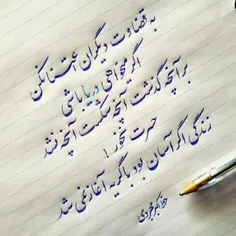 به قضاوت دیگران اعتنا نکن
اگر میخواهی دریا باشی
بر آنچه گذشت آنچه شکست آنچه نشد
حسرت نخور !
زندگی اگر آسان بود با گریه آغاز نمی شد